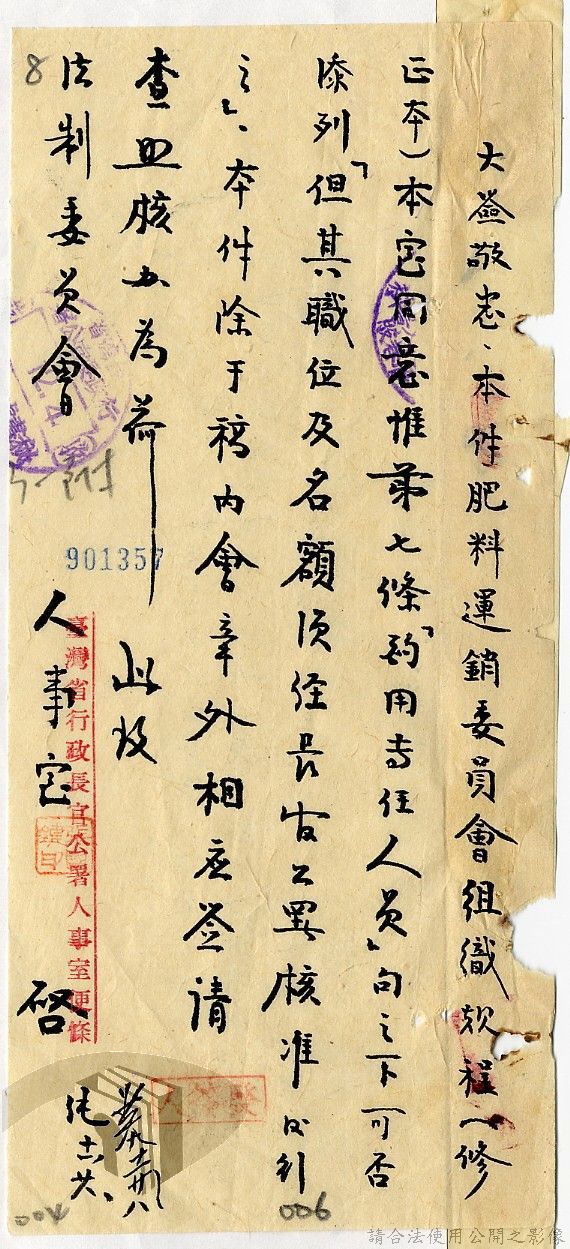 大簽敬悉、本件肥料運銷委員會組織規程（修
正本）本室同意惟第七條「酌用專任人員」句之下可否
添列「但其職位及名額須經長官公署核准
之」、本件除于稿內會章外相應簽請
查照核办為荷 此致
法制委員會
人事室 啓
臺灣省行政長官公署人事室便條
901357
8
006
004
請合法使用公開之影像